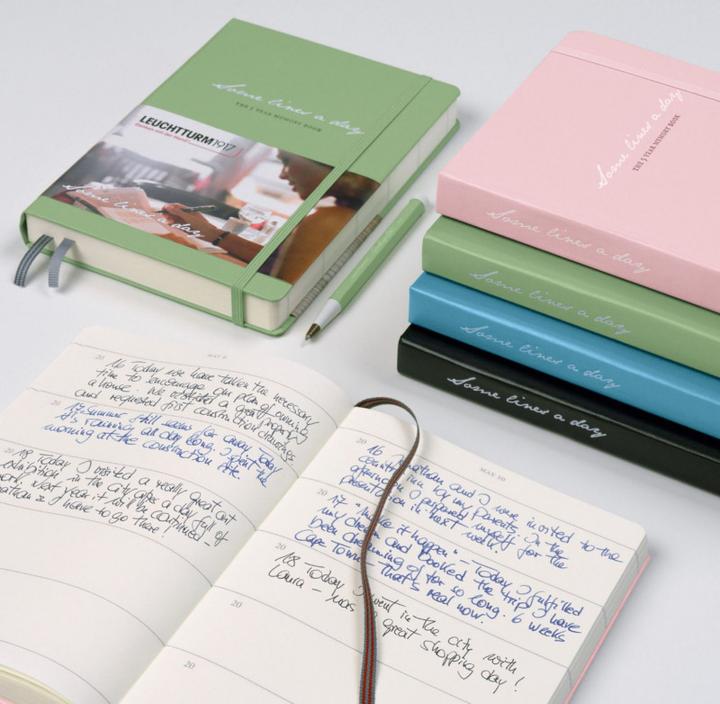 Some lines a day
THE 5 YEAR MEMORY BOOK
LEUCHTTURM1917
Some lines a day
Some lines a day
THE 5 YEAR MEMORY BOOK
Some lines a day
Some lines a day
Some lines a day
Some lines a day
20 16 Today we have taken the necessary
to encourage our plan of owning
a house. We a great property
and requested first construction drawings
20 17 summer still far away. Today
it's raining all day long. I spent the
morning at the construction site.
20 18 Today I visited a really great art
exhibition in the city after a day full of
work. Next year it will be continued –
I have to go there!
MAY 10
20 16 Jonathan and I were invited to the
country by my parents. In the
afternoon I prepared myself for the
presentation in next week.
20 17 "Make it happen" – Today I fulfilled
my dream and booked the trip I have
been dreaming of for so long. 6 weeks
Cape Town – that's real now.
20 18 Today I went in the city with
Laura – was a great shopping day!
20
20